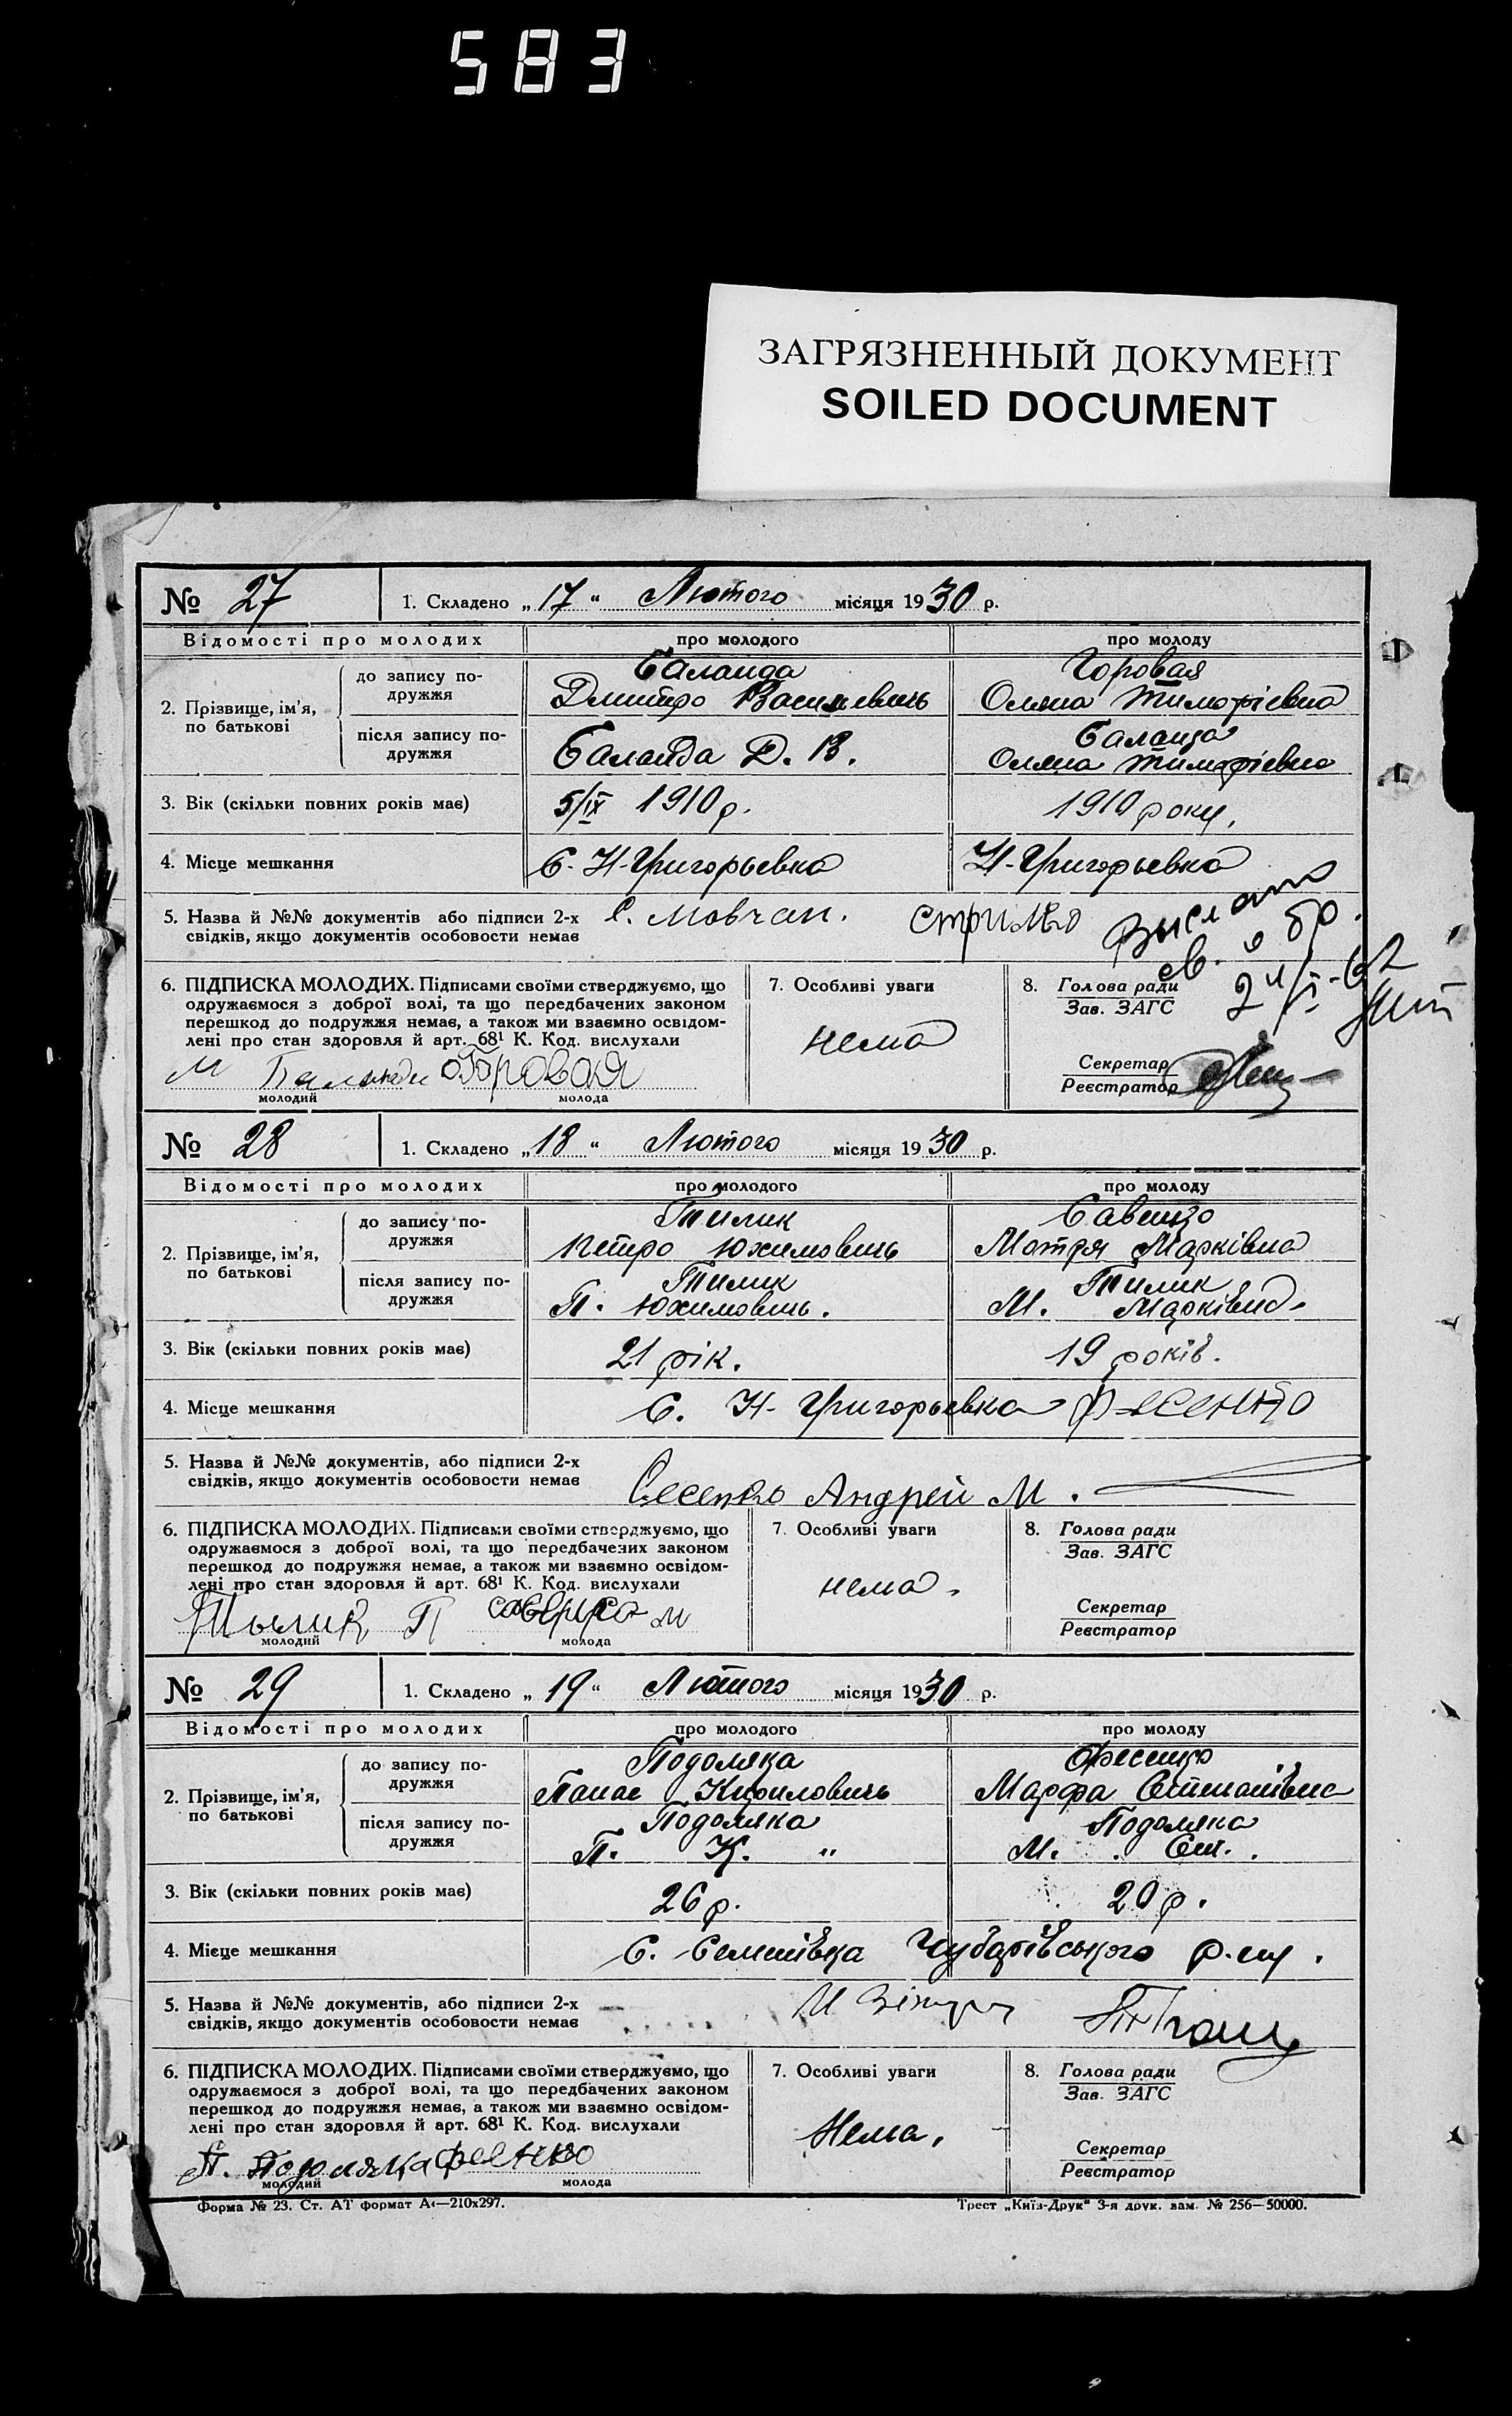 583
ЗАГРЯЗНЕННЫЙ ДОКУМЕНТ
SOILED DOCUMENT
№ 27 1. Складено „17“ Лютого місяця 1930 р.
Відомості про молодих про молодого про молоду
2. Прізвище, ім'я, по батькові
до запису подружжя
Баланда Горовая
Дмитро Васильевичь Оляна Тимофіевна
після запису подружжя
Баланда Д. В. Баланда
Оляна Тимофіевна
3. Вік (скільки повних років має) 5/ІХ 1910 р. 1910 року.
4. Місце мешкання С. Н-Григорьевка Н-Григорьевка
5. Назва й №№ документів або підписи 2-х
свідків, якщо документів особовости немає
С. Мовчан.
Выслано
св. о бр.
6. ПІДПИСКА МОЛОДИХ. Підписами своїми стверджуємо, що
одружаємося з доброї волі, та що передбачених законом
перешкод до подружжя немає, а також ми взаємно освідом-
лені про стан здоровля й арт. 68¹ К. Код. вислухали
Горовая
молодий молода
7. Особливі уваги
нема
8. Голова ради
Зав. ЗАГС
Секретар
Реєстратор
№ 28 1. Складено „18“ Лютого місяця 1930 р.
Відомості про молодих про молодого про молоду
2. Прізвище, ім'я, по батькові
до запису подружжя
Тилик Савенко
Петро Юхимовичь Мотря Марківна
після запису подружжя
Тилик Тилик
П. Юхимовичь. М. Марківна.
3. Вік (скільки повних років має) 21 рік. 19 років.
4. Місце мешкання С. Н-Григорьевка
5. Назва й №№ документів, або підписи 2-х
свідків, якщо документів особовости немає
Андрей М.
6. ПІДПИСКА МОЛОДИХ. Підписами своїми стверджуємо, що
одружаємося з доброї волі, та що передбачених законом
перешкод до подружжя немає, а також ми взаємно освідом-
лені про стан здоровля й арт. 68¹ К. Код. вислухали
Тылик П
молодий молода
7. Особливі уваги
нема.
8. Голова ради
Зав. ЗАГС
Секретар
Реєстратор
№ 29 1. Складено „19“ Лютого місяця 1930 р.
Відомості про молодих про молодого про молоду
2. Прізвище, ім'я, по батькові
до запису подружжя
Подоляка Фесенко
Панас Кирилович Марфа Степанівна
після запису подружжя
Подоляка Подоляка
П. К. " М. Ст.
3. Вік (скільки повних років має) 26 р. 20 р.
4. Місце мешкання С. Семенівка Чубарівського р-ну.
5. Назва й №№ документів, або підписи 2-х
свідків, якщо документів особовости немає
6. ПІДПИСКА МОЛОДИХ. Підписами своїми стверджуємо, що
одружаємося з доброї волі, та що передбачених законом
перешкод до подружжя немає, а також ми взаємно освідом-
лені про стан здоровля й арт. 68¹ К. Код. вислухали
П. Подоляка
молодий молода
7. Особливі уваги
Нема.
8. Голова ради
Зав. ЗАГС
Секретар
Реєстратор
Форма № 23. Ст. АТ формат А₄—210х297. Трест „Київ-Друк“ 3-я друк. зам. № 256—50000.